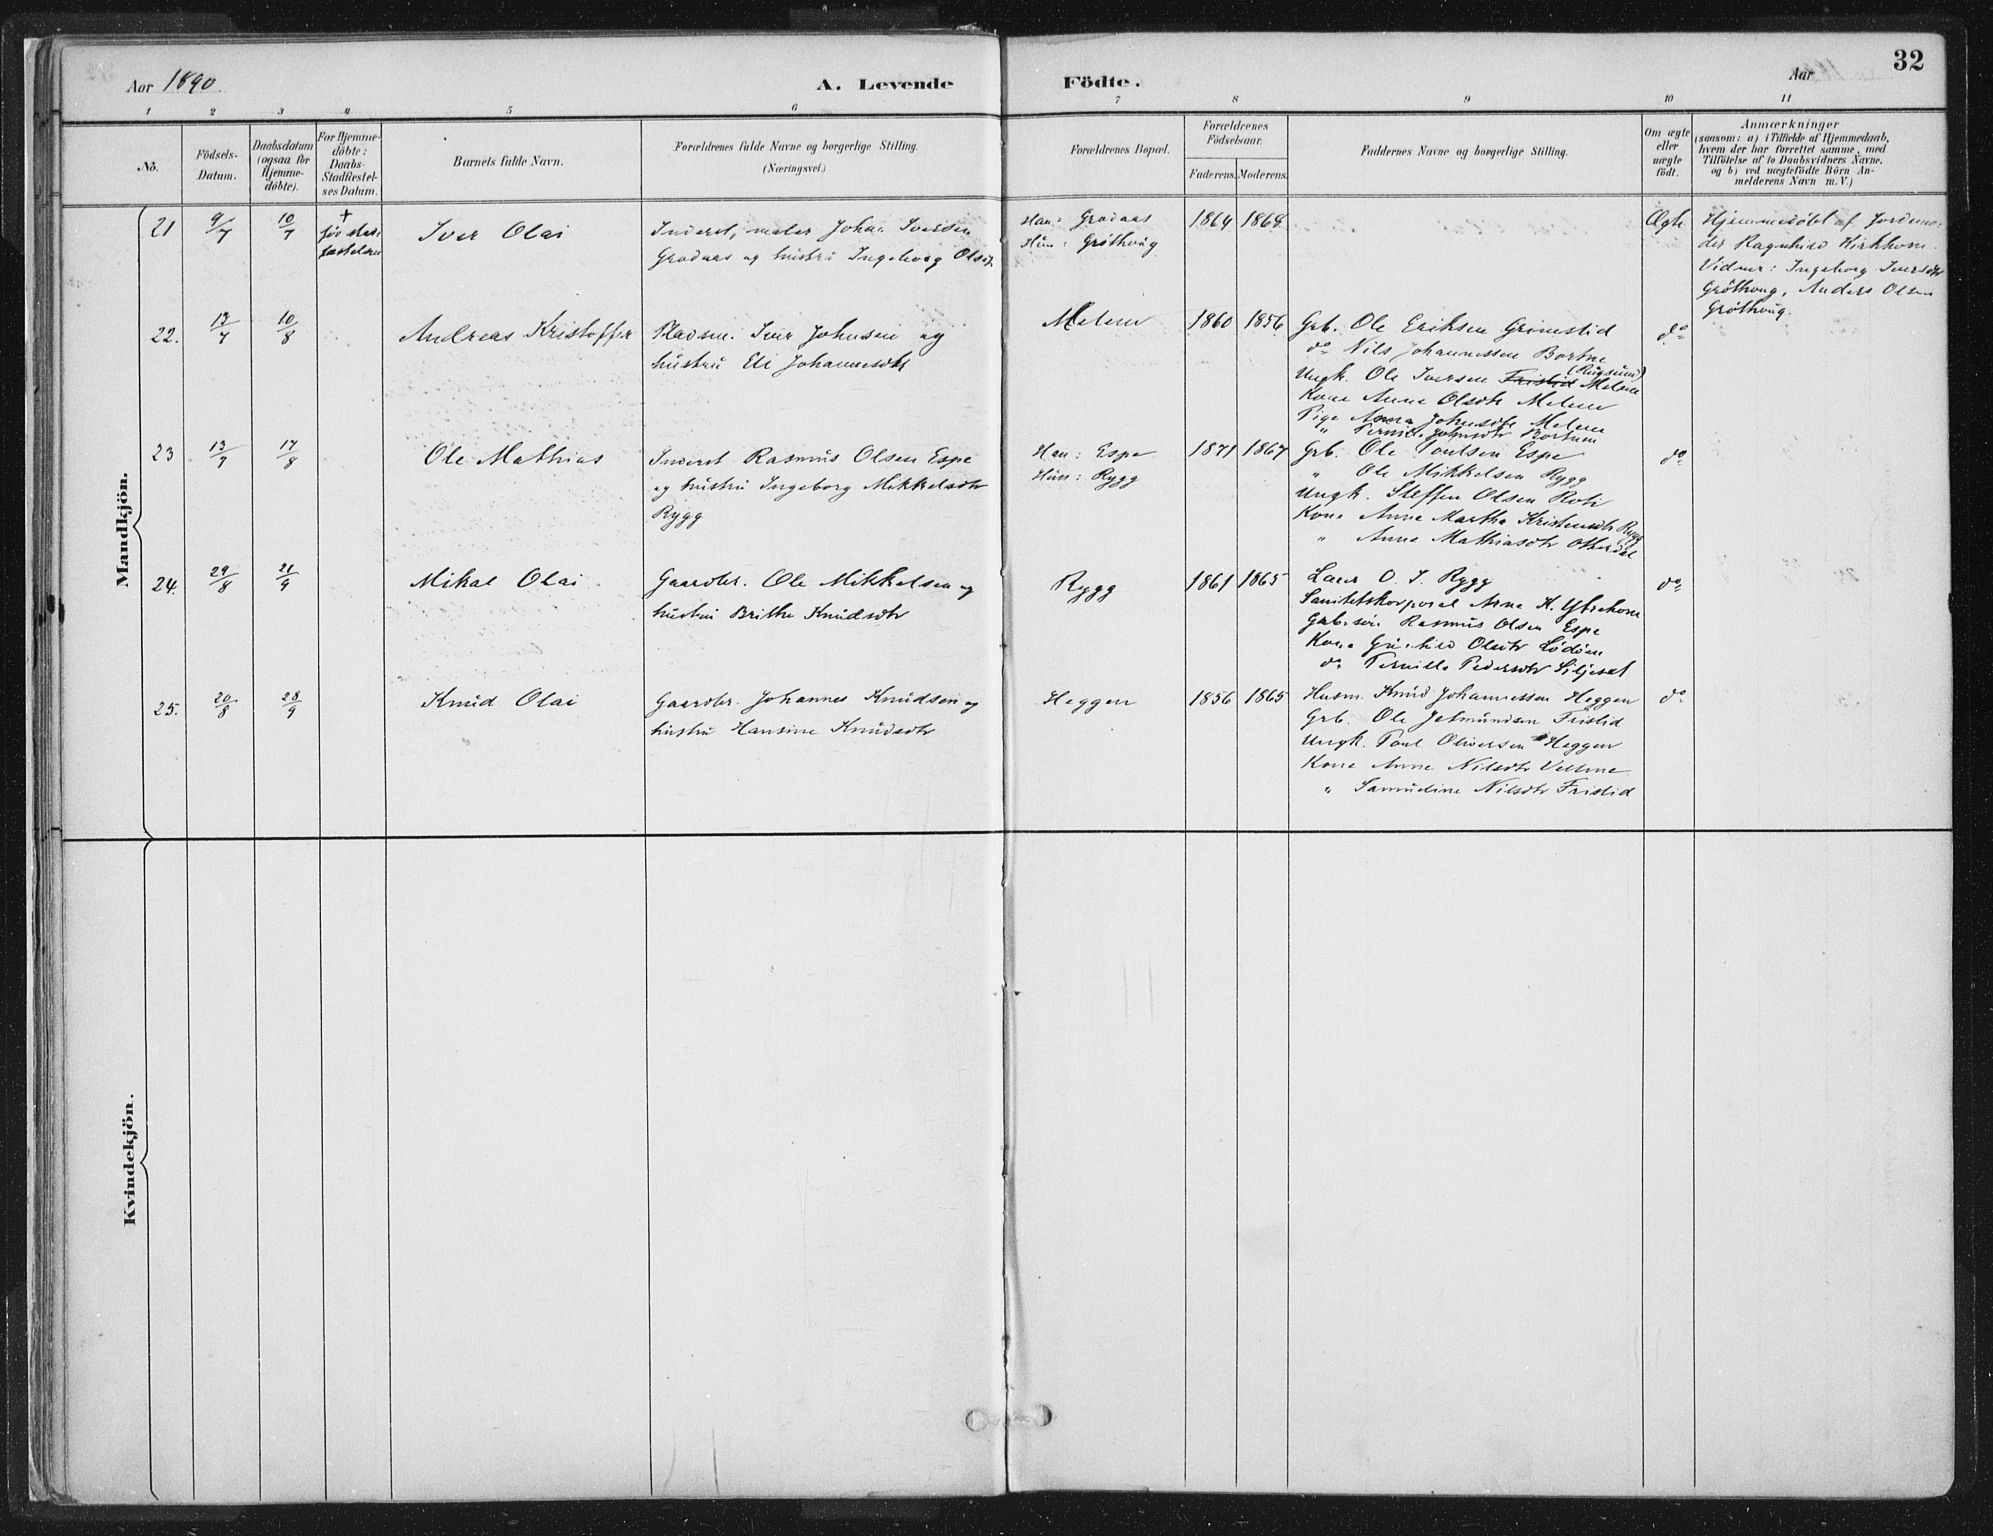 Aar 1890.
A. Levende
Födte.
Aar
32
1 2 3 4 5 6 7 8 9 10 11
No.
Födsels-
Datum.
Daabsdatum
(ogsaa for
Hjemme-
döbte).
For Hjemme-
döbte:
Daabs-
Stadfæstel-
ses Datum.
Barnets fulde Navn.
Forældrenes fulde Navne og borgerlige Stilling.
(Næringsvei.)
Forældrenes Bopæl.
Forældrenes
Födselsaar.
Faderens. Moderens.
Faddernes Navne og borgerlige Stilling.
Om ægte
eller
uægte
födt.
Anmærkninger
(saasom: a) i Tilfælde af Hjemmedaab,
hvem der har forrettet samme, med
Tilföielse af to Daabsvidners Navne,
og b) ved uægtefödte Börn An-
melderens Navn m. V.)
Mandkjön.
21 9/7 10/7 + før stad-
fæstelsen
Iver Olai
Inderst, maler Johan Iversen
Grodaas og hustru Ingeborg Olsdtr
Han: Grodaas
Hun: Grøthaug
1864 1868
Ægte
Hjemmedöbt af Jordemo-
der Ragnhild Kirkhorn.
Vidner: Ingeborg Iversdtr
Grøthaug, Anders Olsen
Grøthaug.
22. 13/7 10/8
Andreas Kristoffer
Pladsm. Iver Johnsen og
hustru Eli Johannesdtr
Melem
1860 1856
Grb. Ole Eriksen Grimstid
do Nils Johannessen Bortne
(Rugsund)
Ungk. Ole Iversen Fristid Melem
Kone Anne Olsdtr Melem
Pige Anna Johnsdtr Melem
" Pernille Johnsdtr Bortnen
do
23 13/7 17/8
Ole Mathias
Inderst Rasmus Olsen Espe
og hustru Ingeborg Mikkelsdtr
Rygg
Han: Espe
Hun: Rygg
1871 1867
Grb. Ole Poulsen Espe
" Ole Mikkelsen Rygg
Ungk. Steffen Olsen Roti
Kone Anne Martha Kristensdtr Rygg
" Anne Mathiasdtr Otterdal
do
24. 29/8 21/9
Mikal Olai
Gaardbr. Ole Mikkelsen og
hustru Brithe Knudsdtr
Rygg
1861 1865
Lærer O. I. Rygg
Sanitetskorporal Arne K. Ytrehorn
Gaardbr. søn Rasmus Olsen Espe
Kone Gunhild Olsdtr Lödöen
do Pernille Pedersdtr Siljeset
do
25. 20/8 28/9
Knud Olai
Gaardbr. Johannes Knudsen og
hustru Hansine Knudsdtr
Heggen
1856 1865
Husm. Knud Johannessen Heggen
Grb. Ole Jetmundsen Fristid
Ungk. Poul Oliversen Heggen
Kone Anne Nilsdtr Vellene
" Samudine Nilsdtr Fristid
do
Kvindekjön.